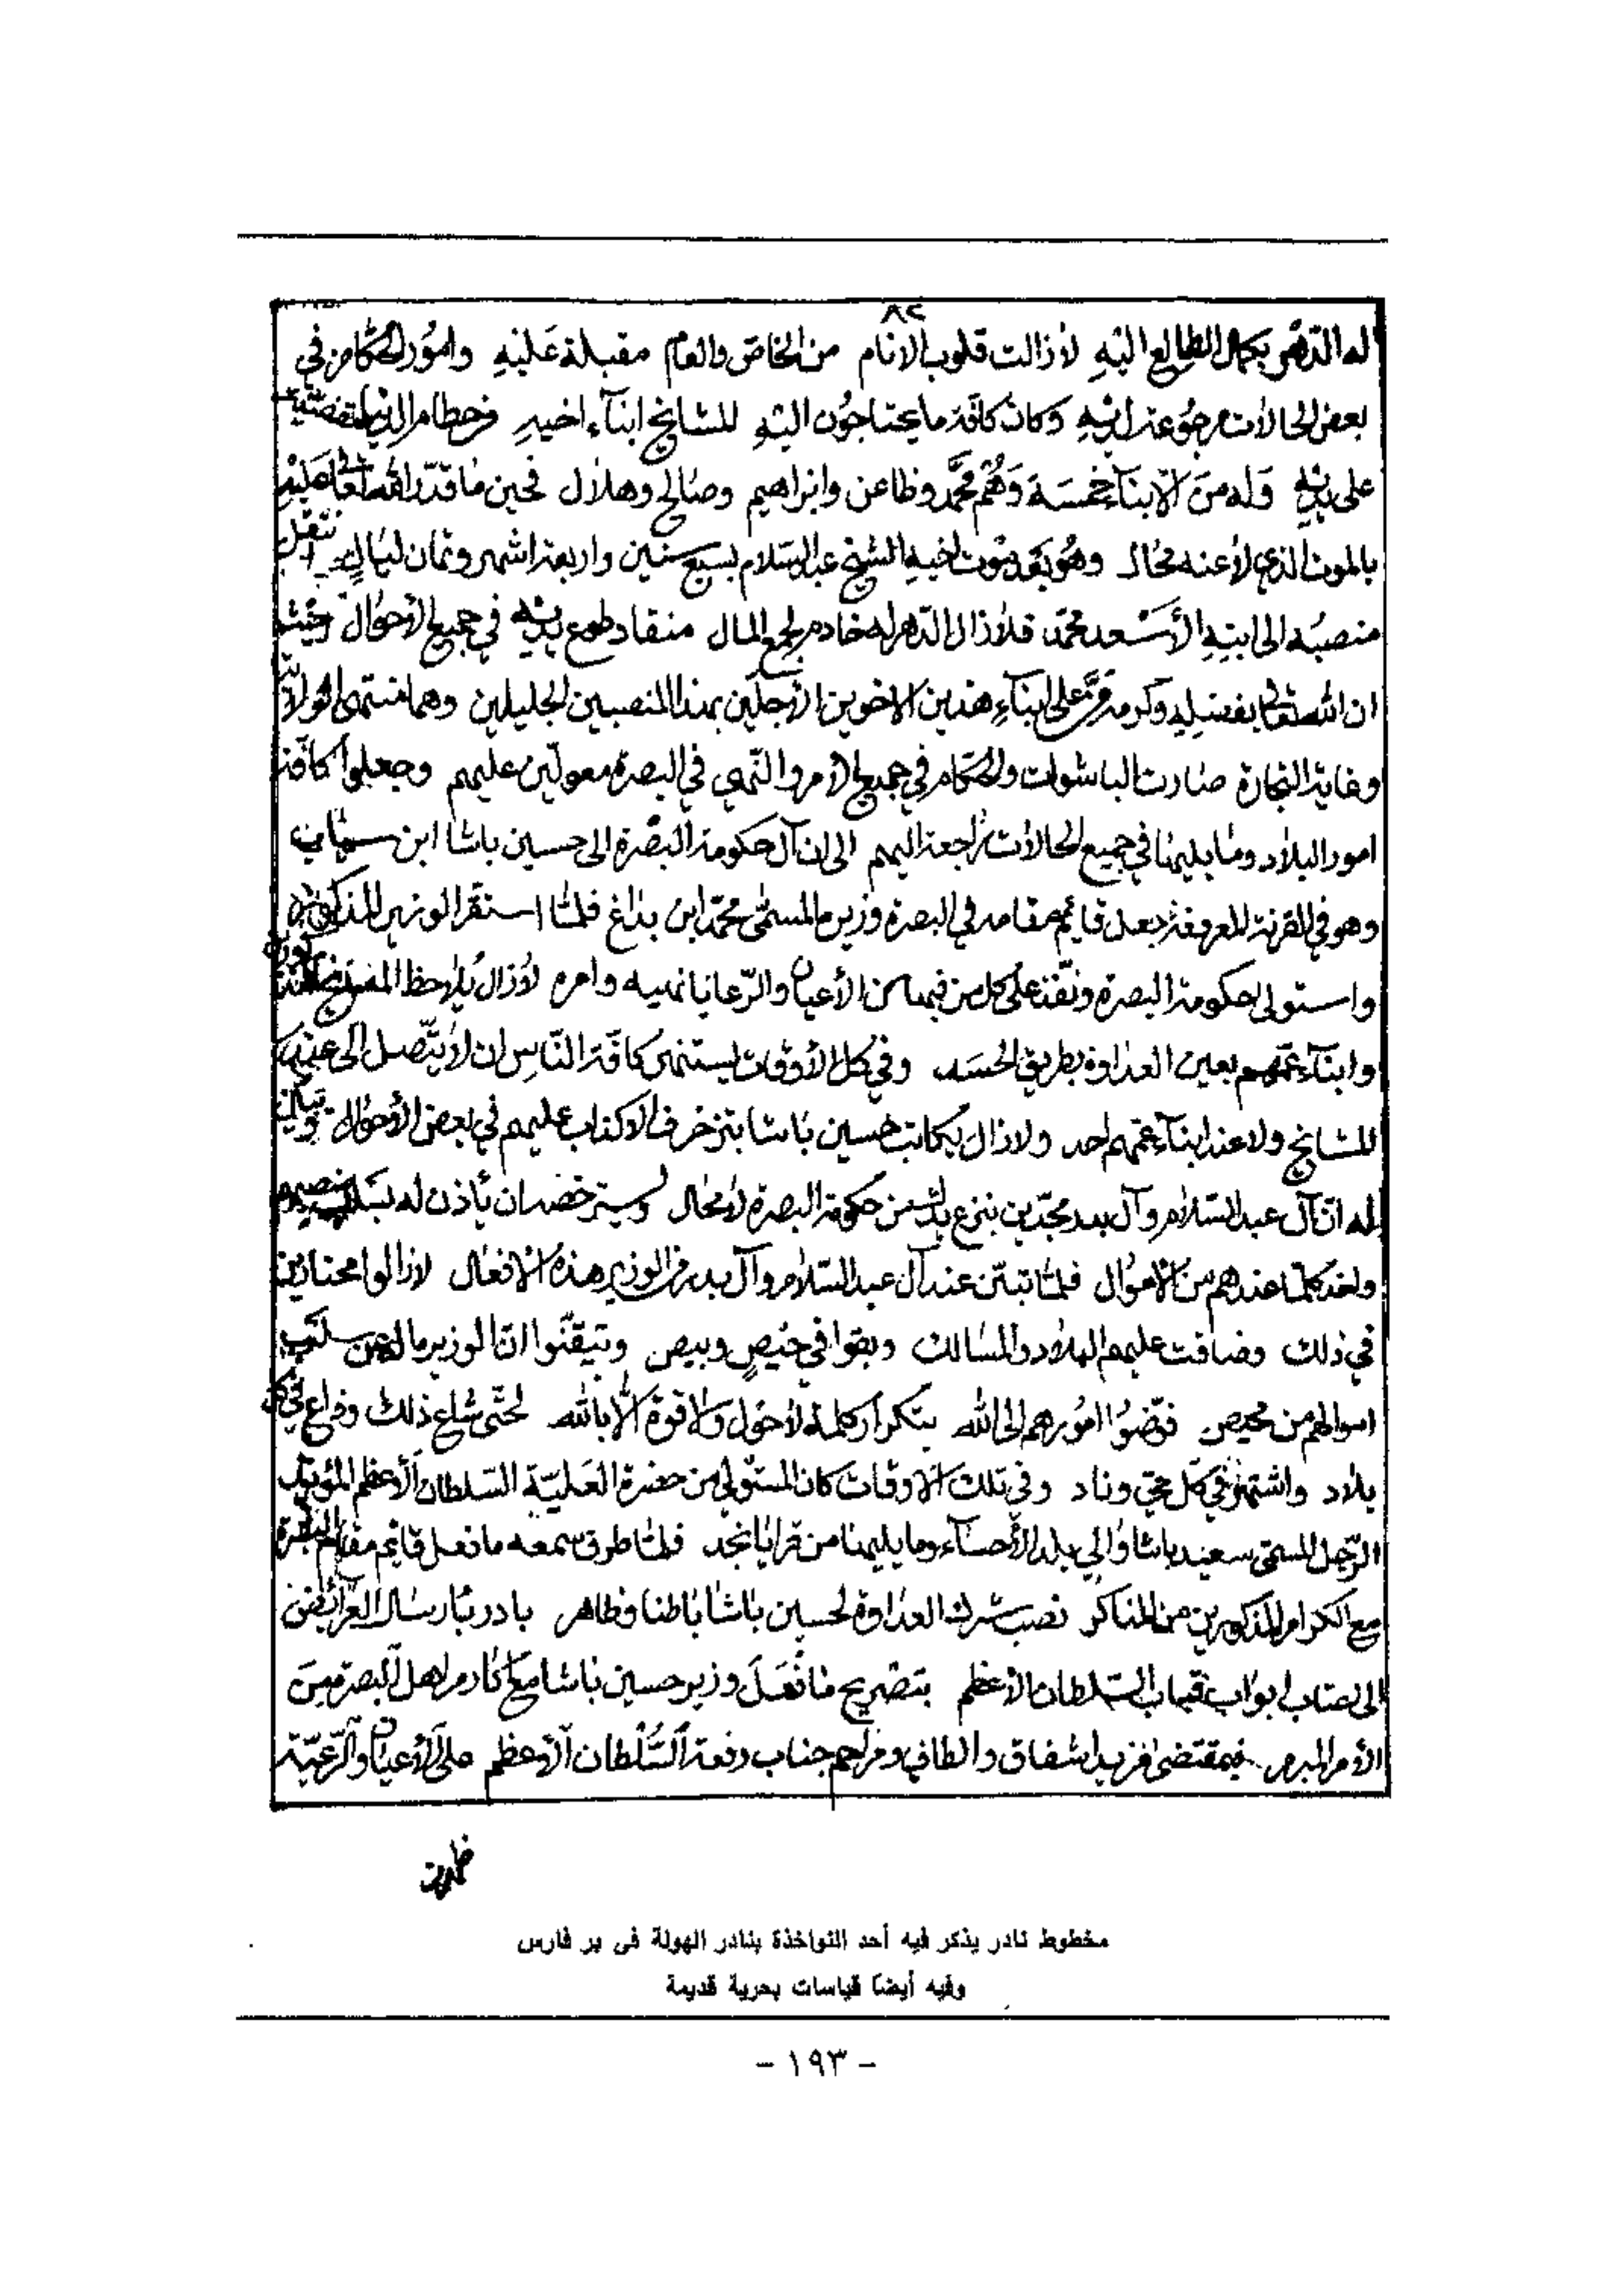 ٨٢
له الدهر بكمال الطالع اليه لازالت قلوب الانام من الخاص والعام مقبلة عليه وامور الحكام في
بعض الحالات مرجوعة لديه وكان كافة ما يحتاجون اليه المشايخ ابناء اخيه من حطام الدنيا
على يديه وله من الابناء خمسة وهم محمد وظاعن وابراهيم وصالح وهلال فحين ما قدر الله تعالى عليه
بالموت الذي لا عنه محال وهو بعد موت اخيه الشيخ عبد السلام بسبع سنين واربعة اشهر وثمان ليال انتقل
منصبه الى ابنه الأسعد محمد فلازال الدهر له خادم لجمع المال منقاد طوع يديه في جميع الاحوال وحيث
ان الله تعالى بفضله وكرمه على ابناء هذين الاخوين الأجلين بهذا المنصبين الجليلين وهما منتهى
وغاية التجارة صارت الباشوات والحكام في جميع الامر والنهي في البصرة معولين عليهم وجعلوا كافة
امور البلاد وما يليها في جميع الحالات راجعة اليهم الى ان آل حكومة البصرة الى حسين باشا ابن
وهو في القرنة المعروفة جعل قايم مقامه في البصرة وزيره المسمى محمد ابن بداغ فلما استقر الوزير المذكور
واستولى بحكومة البصرة ونفذ على كل من فيها من الأعيان والرعايا نهيه وامره لازال يلاحظ المشايخ
وابناء عمهم بعين العداوة بطريق الحسد وفي كل الأوقات يستنهى كافة الناس ان لا يتصل الى عند
المشايخ ولا عند ابناء عمهم احد ولازال يكاتب حسين باشا بتزخرف الاكذاب عليهم في بعض الأحوال
له ان آل عبد السلام وآل بدر مجدين بنزع يدك من حكومة البصرة لا محال ويسترخصه ان يأذن له بسلب
واخذ كلما عندهم من الاموال فلما تبين عند آل عبد السلام وآل بدر من الوزير هذه الافعال لازالوا محتارين
في ذلك وضاقت عليهم البلاد والمسالك وبقوا في حيص وبيص وتيقنوا ان الوزير ماله عن سلب
اموالهم من محيص فوضوا امورهم الى الله بتكرار كلمة لاحول ولا قوة الا بالله حتى شاع ذلك وذاع في كل
بلاد واشتهر في كل حي وناد وفي تلك الاوقات كان المستولي من حضرة العلية السلطان الأعظم المؤيد
الرجل المسمى سعيد باشا والي بلد الأحساء وما يليها من قرايا نجد فلما طرق سمعه ما فعل قايم مقام البصرة
مع الكرام المذكورين من المناكر نصب شرك العداوة لحسين باشا باطنا وظاهر بادر بارسال العرائض
الى اعتاب ابواب قباب السلطان الأعظم بتصريح ما فعل وزير حسين باشا مع اكارم اهل البصرة من
الأمر المبرم فبمقتضى مزيد اشفاق والطاف ومراحم جناب رفعة السلطان الأعظم على الأعيان والرعية
مخطوط نادر يذكر فيه أحد النواخذة بنادر الهولة فى بر فارس
وفيه أيضا قياسات بحرية قديمة
- ١٩٣ -